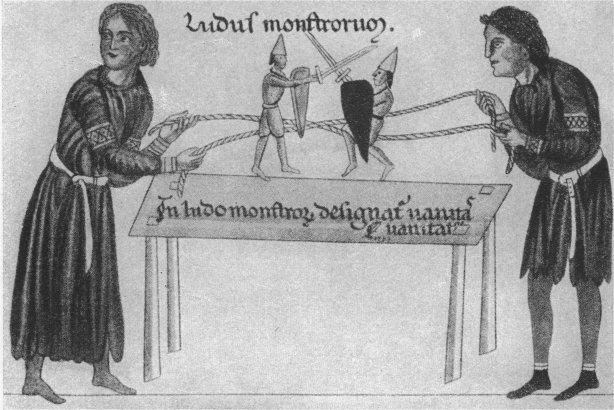 Ludus monstrorum.
In ludo monstroꝝ designatˀ uanitaˢ
uanitat